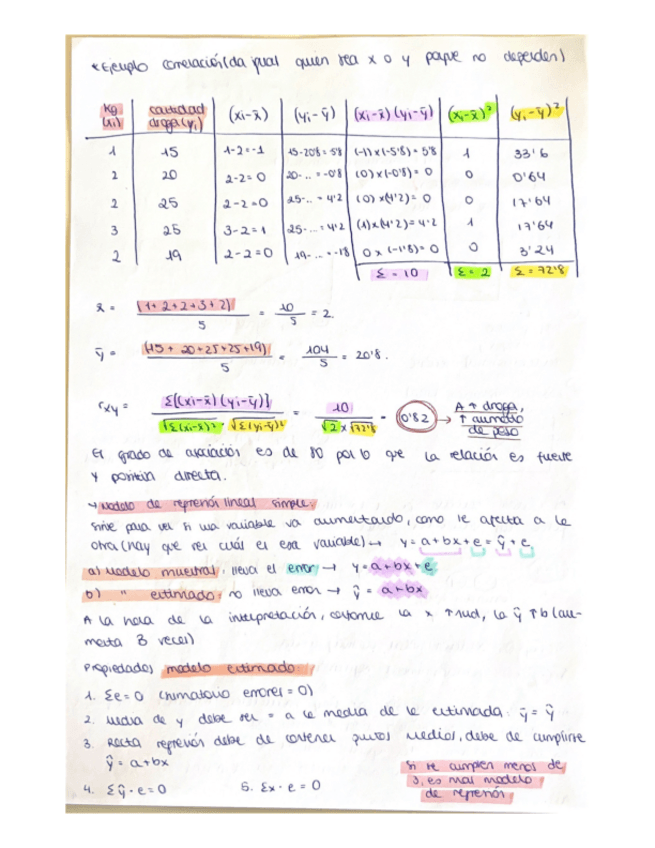 *Ejemplo correlación (da igual quien sea x o y porque no dependen)
Kg (xi) cantidad droga (yi) (xi-x̄) (yi-ȳ) (xi-x̄)(yi-ȳ) (xi-x̄)² (yi-ȳ)²
1 15 1-2=-1 15-20'8=5'8 (-1)x(-5'8)=5'8 1 33'6
2 20 2-2=0 20-..=-0'8 (0)x(-0'8)=0 0 0'64
2 25 2-2=0 25-..=4'2 (0)x(4'2)=0 0 17'64
3 25 3-2=1 25-...=4'2 (1)x(4'2)=4'2 1 17'64
2 19 2-2=0 19-...=-1'8 0x(-1'8)=0 0 3'24
Σ=10 Σ=2 Σ=72'8
x̄ = (1+2+2+3+2) / 5 = 10 / 5 = 2.
ȳ = (15+20+25+25+19) / 5 = 104 / 5 = 20'8.
rxy = Σ[(xi-x̄)(yi-ȳ)] / √Σ(xi-x̄)²·√Σ(yi-ȳ)² = 10 / √2 x √72'8 = 0'82 → A ↑ droga, ↑ aumento de peso
El grado de asociación es de 80 por lo que la relación es fuerte
y positiva directa.
→ Modelo de regresión lineal simple:
Sirve para ver si una variable va aumentando, como le afecta a la
otra (hay que ver cuál es esa variable) → y = a+bx+e = ŷ+e
a) Modelo muestral: lleva el error → y = a+bx+e
b) " estimado: no lleva error → ŷ = a+bx
A la hora de la interpretación, conforme la x ↑ 1ud, la ŷ ↑ b (au-
menta B veces)
Propiedades modelo estimado:
1. Σe=0 (sumatorio errores = 0)
2. Media de y debe ser = a la media de la estimada: ȳ = ŷ
3. Recta regresión debe de contener puntos medios, debe de cumplirse
ŷ = a+bx
4. Σŷ·e=0 5. Σx·e=0
Si se cumplen menos de
3, es mal modelo
de regresión